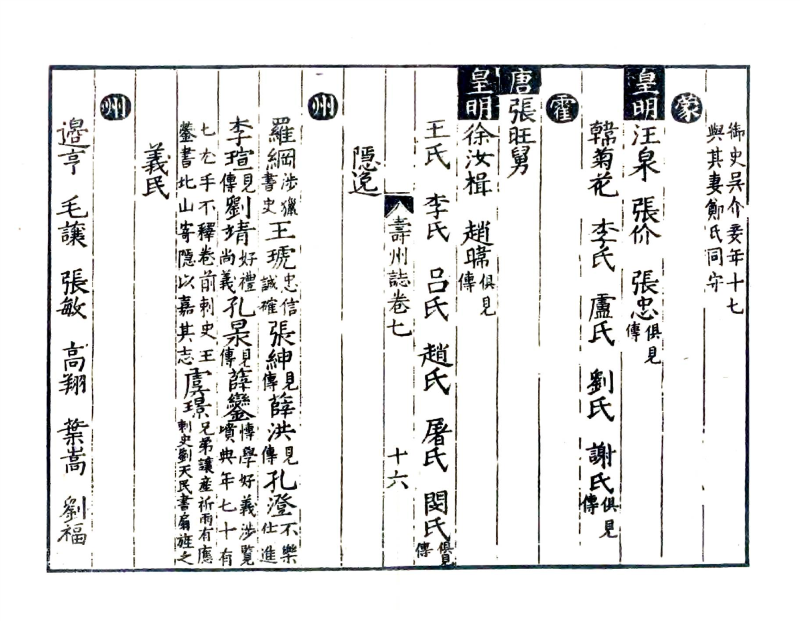 御史吳介妾年十七
與其妻鄭氏同守
蒙
皇明汪泉 張价 張忠俱見傳
韓菊花 李氏 盧氏 劉氏 謝氏俱見傳
霍
唐張旺舅
皇明徐汝楫 趙暟俱見傳
王氏 李氏 呂氏 趙氏 屠氏 閔氏俱見傳
壽州誌卷七 十六
隱逸
州
羅綱涉獵書史王琥忠信誠確張紳見傳薛洪見傳孔澄不樂仕進
李瑄見傳劉靖好禮尚義孔杲見傳薛鑾博學好義涉覽墳典年七十有
七尤手不釋卷前刺史王鎣書北山寄隱以嘉其志虞璟兄弟讓産祈雨有應刺史劉天民書扁旌之
義民
州
邉亨 毛讓 張敏 高翔 葉嵩 劉福